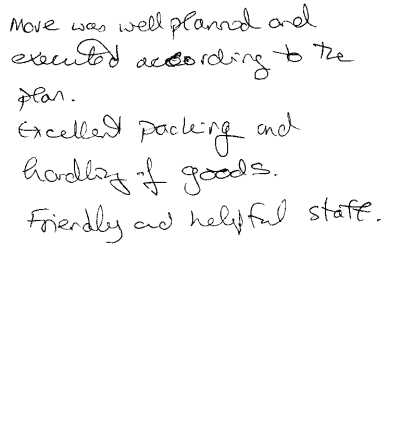 Move was well planned and
executed according to the
plan.
Excellent packing and
handling of goods.
Friendly and helpful staff.